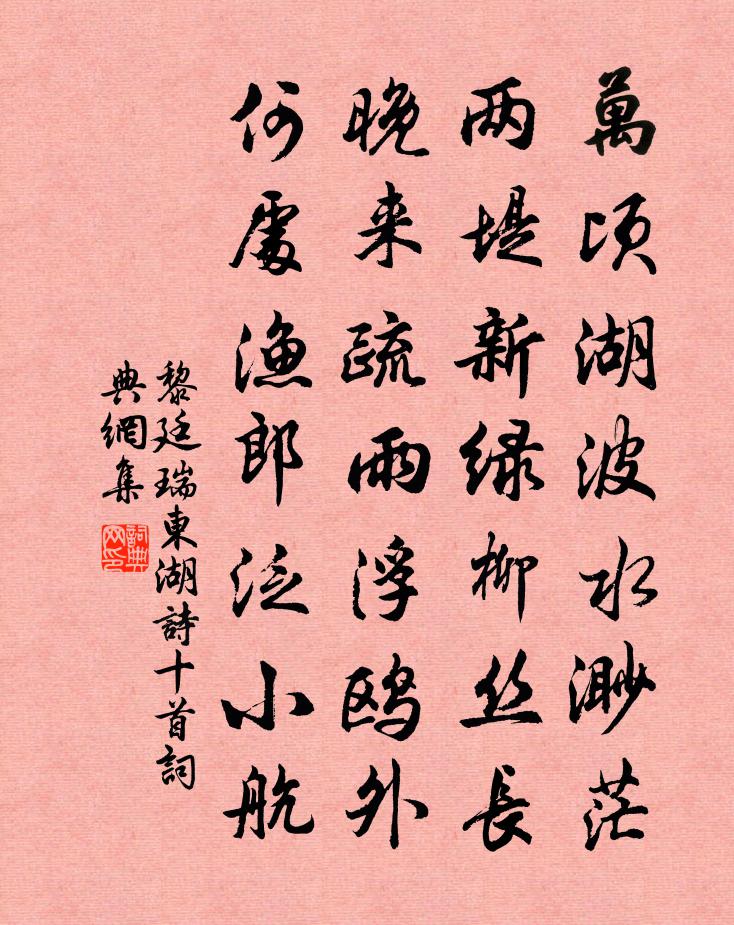 萬頃湖波水渺茫
两堤新绿柳丝長
晚来疏雨浮鸥外
何處渔郎泛小航
黎廷瑞東湖詩十首詞
典網集
詞典
网印